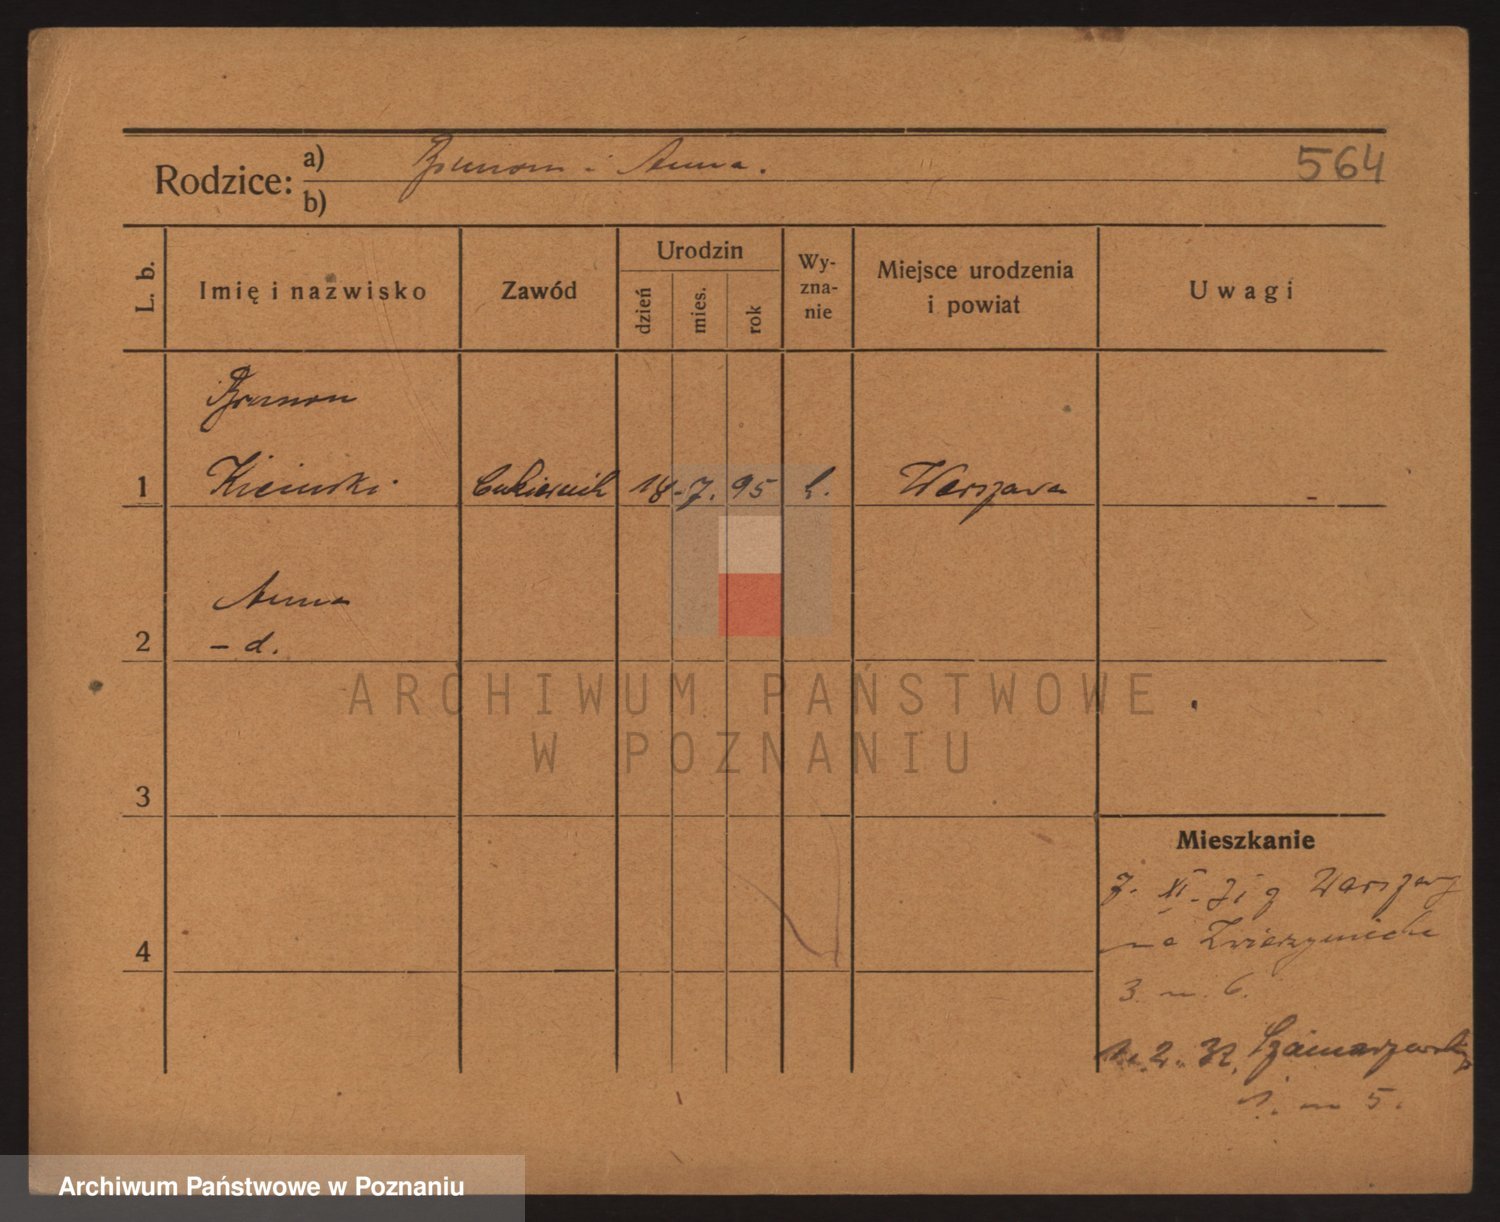 564
Rodzice:
a) Brunon i Anna.
b)
L. b.
Imię i nazwisko
Zawód
Urodzin
dzień
mies.
rok
Wy-
zna-
nie
Miejsce urodzenia
i powiat
Uwagi
Brunon
1 Kiciński Cukiernik 18 - 7. 95 Warszawa -
Anna
2 - d.
3
4
Mieszkanie
7. XI. 31 z Warszawy
na Zwierzyniecka
3. m. 6.
2. 32. Szamarzewskiego
1. m 5.
ARCHIWUM PAŃSTWOWE
W POZNANIU
Archiwum Państwowe w Poznaniu